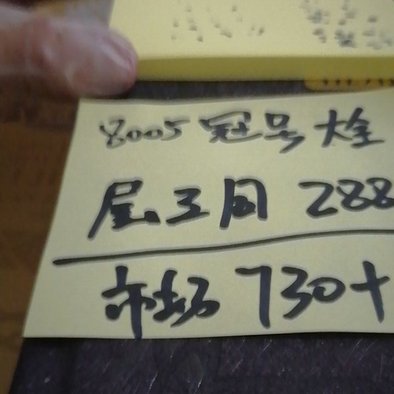 8005 冠号大全
尾三同 288
市场 730+